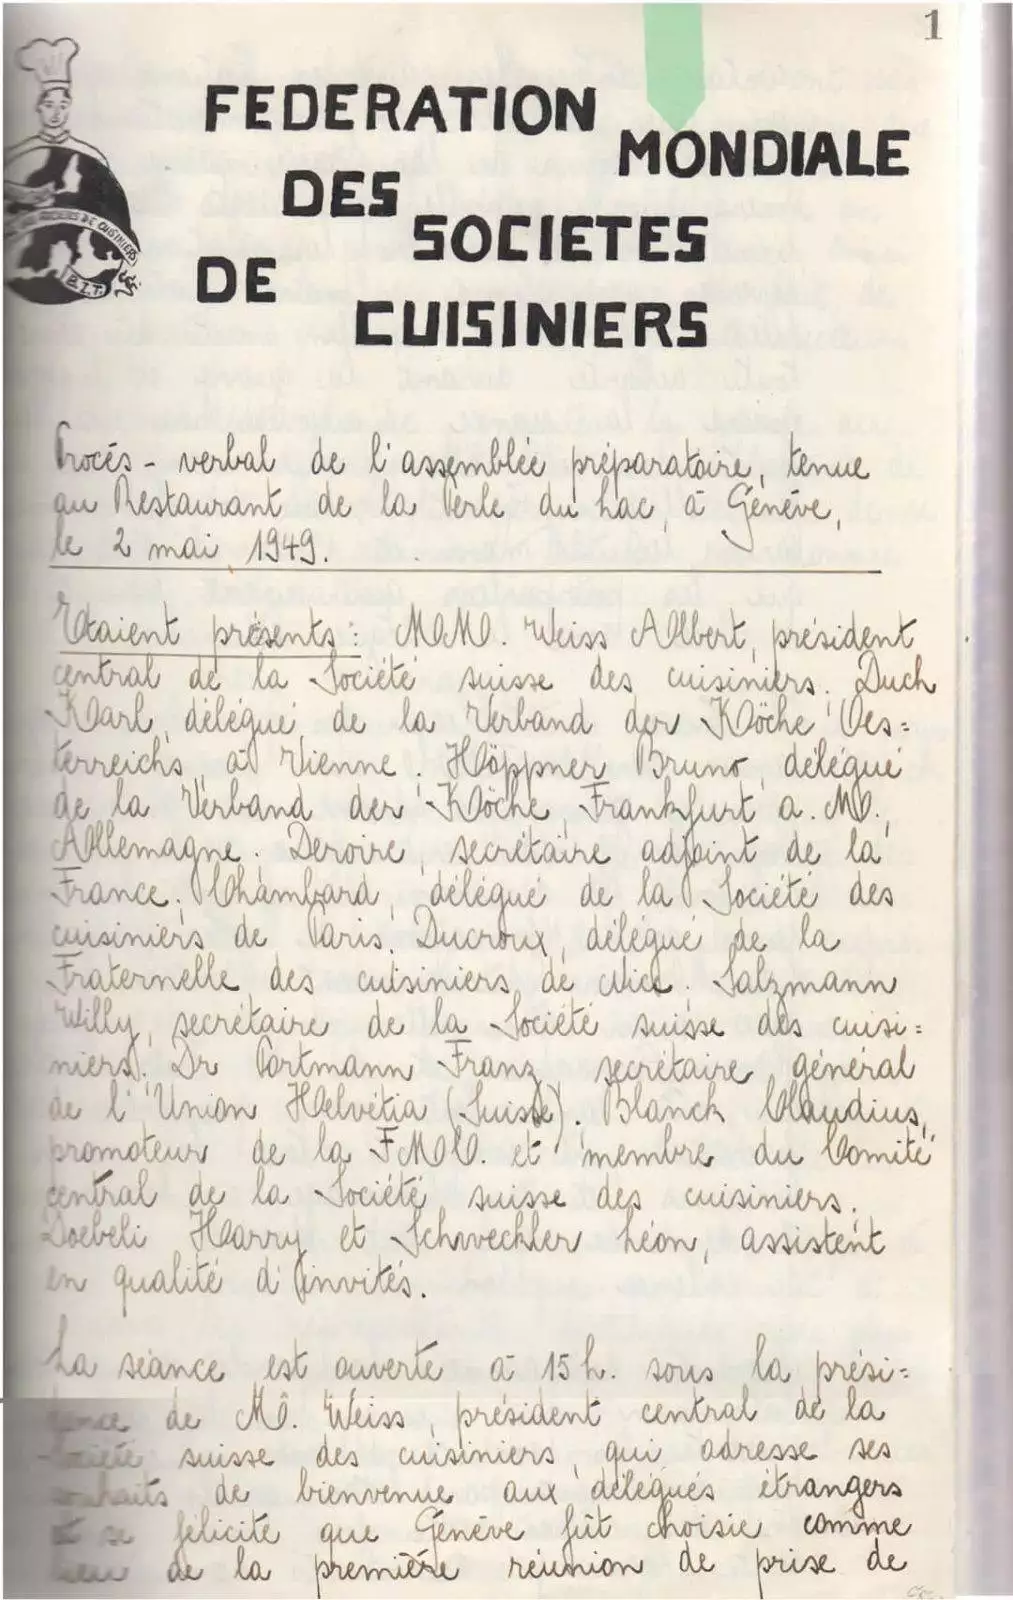 1
FEDERATION MONDIALE
DES SOCIETES
DE CUISINIERS
DE CUISINIERS
B.I.T.
Procés-verbal de l'assemblée préparatoire, tenue
au Restaurant de la Perle du Lac, à Genéve,
le 2 mai 1949.
Etaient présents: MM. Weiss Albert, président
central de la Société suisse des cuisiniers. Duch
Karl, délégué de la Verband der Köche Oes=
terreichs, à Vienne. Höppner Bruno, délégué
de la Verband der Köche, Frankfurt a. M.,
Allemagne. Deroire, secrétaire adjoint de la
France. Chambard, délégué de la Société des
cuisiniers de Paris. Ducroux, délégué de la
Fraternelle des cuisiniers de Nice. Salzmann
Willy, secrétaire de la Société suisse des cuisi=
niers. Dr Portmann Franz, secrétaire général
de l'Union Helvétia (Suisse). Blanck Claudius,
promoteur de la FMC. et membre du Comité
central de la Société suisse des cuisiniers.
Doebeli Harry et Schweckler Léon, assistent
en qualité d'invités.
La séance est ouverte à 15 h. sous la prési=
dence de M. Weiss, président central de la
Société suisse des cuisiniers, qui adresse ses
souhaits de bienvenue aux délégués étrangers
et se félicite que Genéve fût choisie comme
lieu de la première réunion de prise de